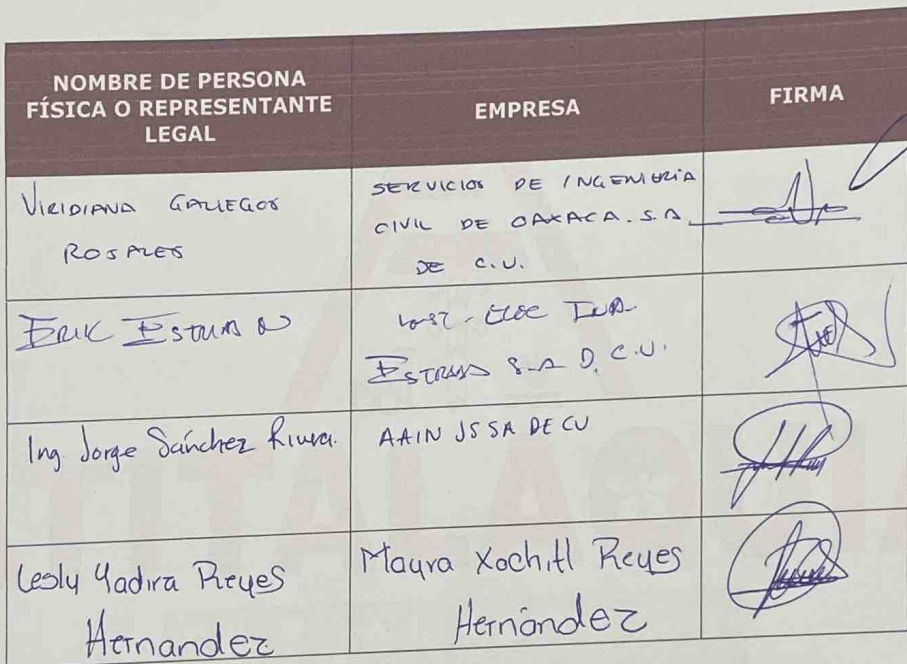 NOMBRE DE PERSONA
FÍSICA O REPRESENTANTE
LEGAL
EMPRESA
FIRMA
VIRIDIANA GALLEGOS
ROSALES
SERVICIOS DE INGENIERIA
CIVIL DE OAXACA. S.A.
DE C.V.
ERIK
ESTRADA S.A D. C.V.
Ing. Jorge Sánchez Rivera.
AAIN JS SA DE CV
Lesly Yadira Reyes
Hernandez
Mayra Xochitl Reyes
Hernández